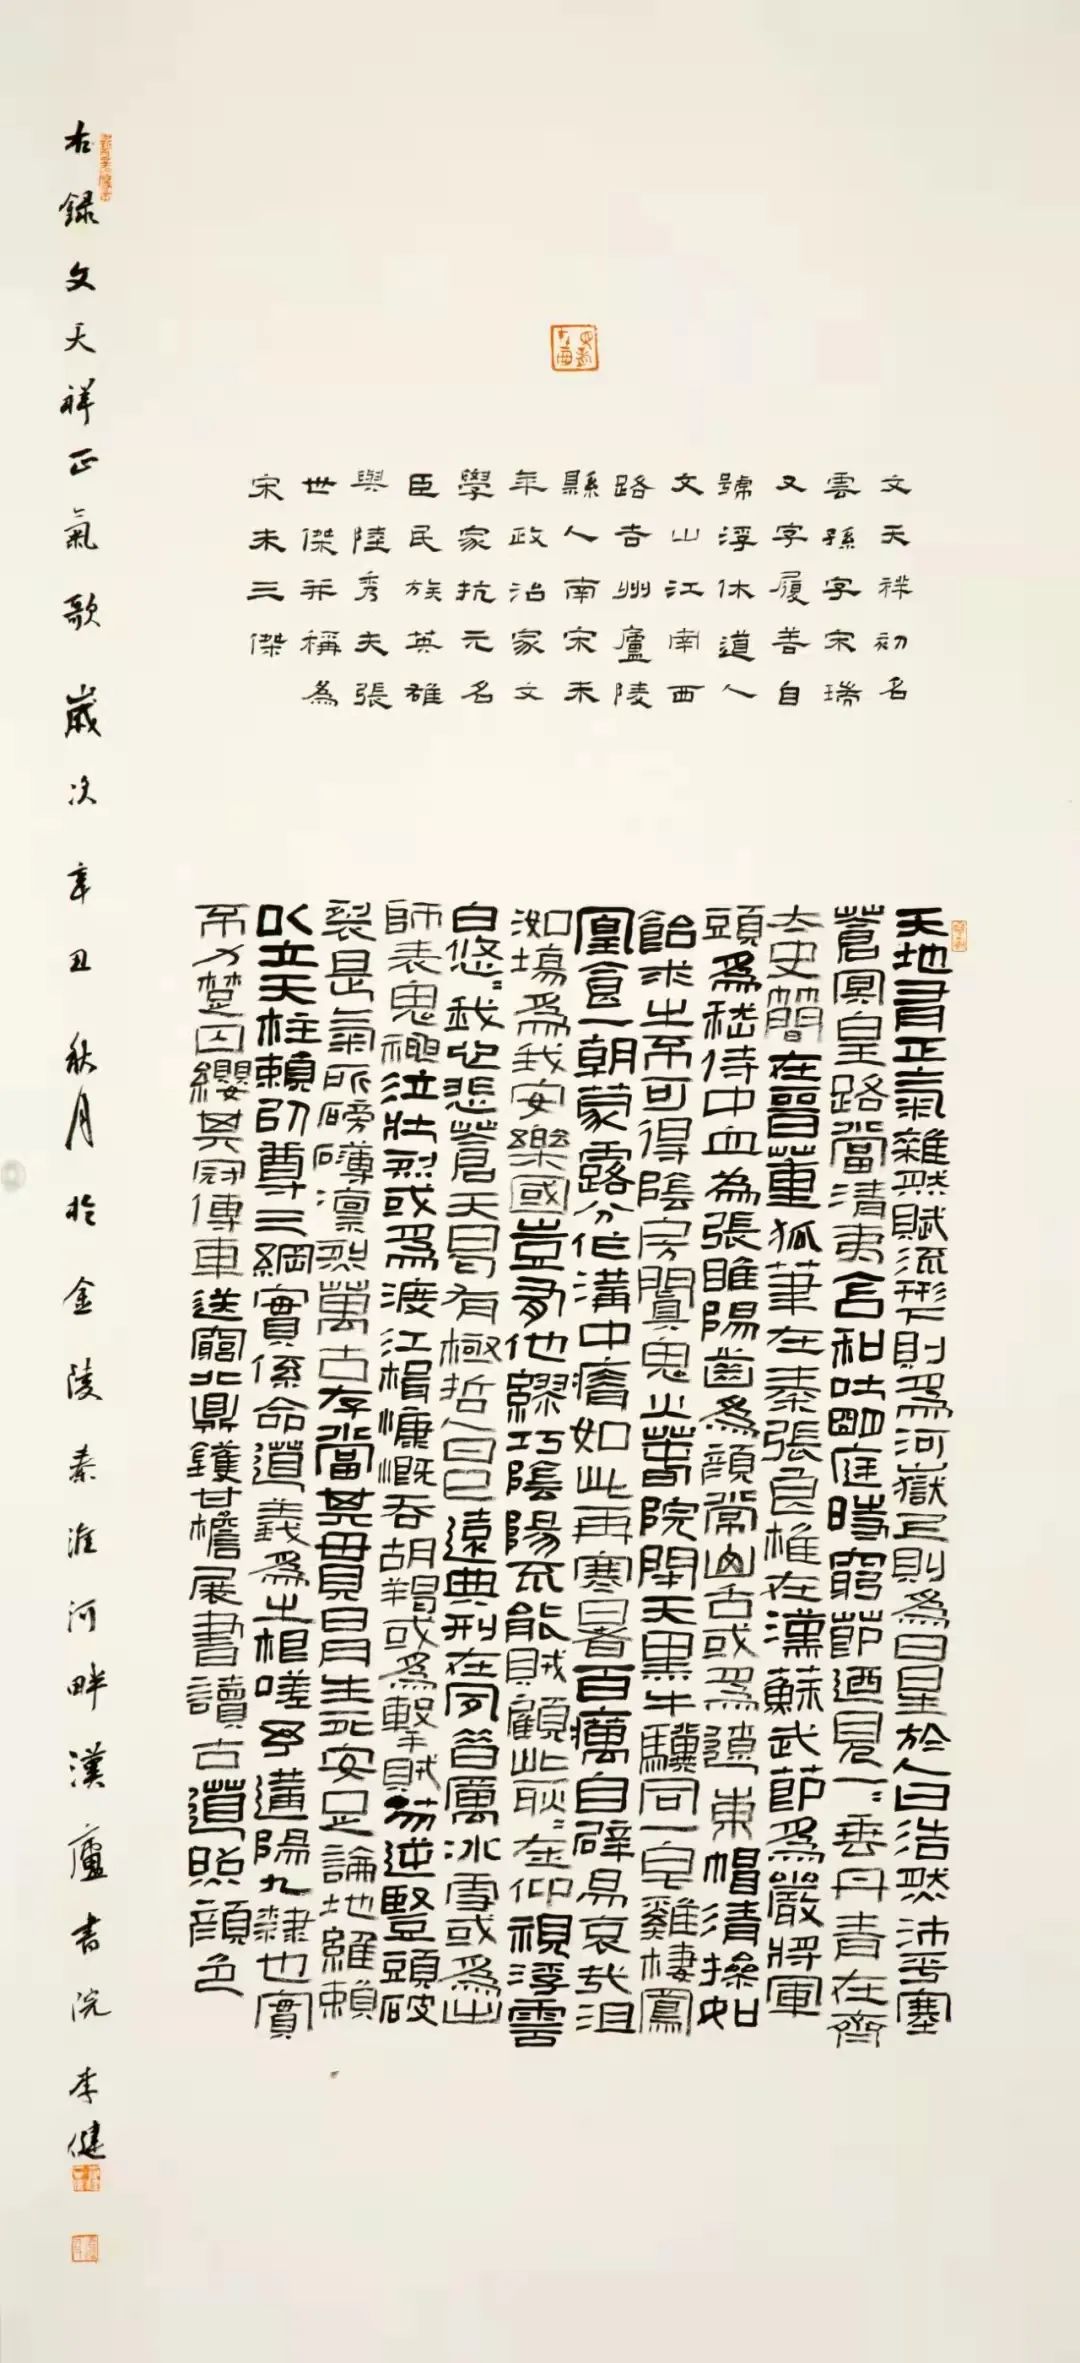 文天祥初名
雲孫字宋瑞
又字履善自
號浮休道人
文山江南西
路吉州廬陵
縣人南宋末
年政治家文
學家抗元名
臣民族英雄
與陸秀夫張
世傑并稱為
宋末三傑
天地有正氣雜然賦流形下則為河嶽上則為日星於人曰浩然沛乎塞
蒼冥皇路當清夷含和吐明庭時窮節迺見一々垂丹青在齊
太史簡在晉董狐筆在秦張良椎在漢蘇武節為嚴將軍
頭為嵇侍中血為張睢陽齒為顏常山舌或為遼東帽清操如
飴求之不可得陰房闃鬼火春院閟天黑牛驥同一皂雞棲鳳
凰食一朝蒙露分作溝中瘠如此再寒暑百癘自辟易哀哉沮
洳場為我安樂國豈有他繆巧陰陽不能賊顧此耿々在仰視浮雲
白悠々我心悲蒼天曷有極哲人日已遠典刑在夙昔厲冰雪或為出
師表鬼神泣壯烈或為渡江楫慷慨吞胡羯或為擊賊笏逆豎頭破
裂是氣所磅礴凜烈萬古存當其貫日月生死安足論地維賴
以立天柱賴以尊三綱實係命道義為之根嗟予遘陽九隸也實
不力楚囚纓其冠傳車送窮北鼎鑊甘檐展書讀古道照顏色
右錄文天祥正氣歌歲次辛丑秋月於金陵秦淮河畔漢廬書院李健